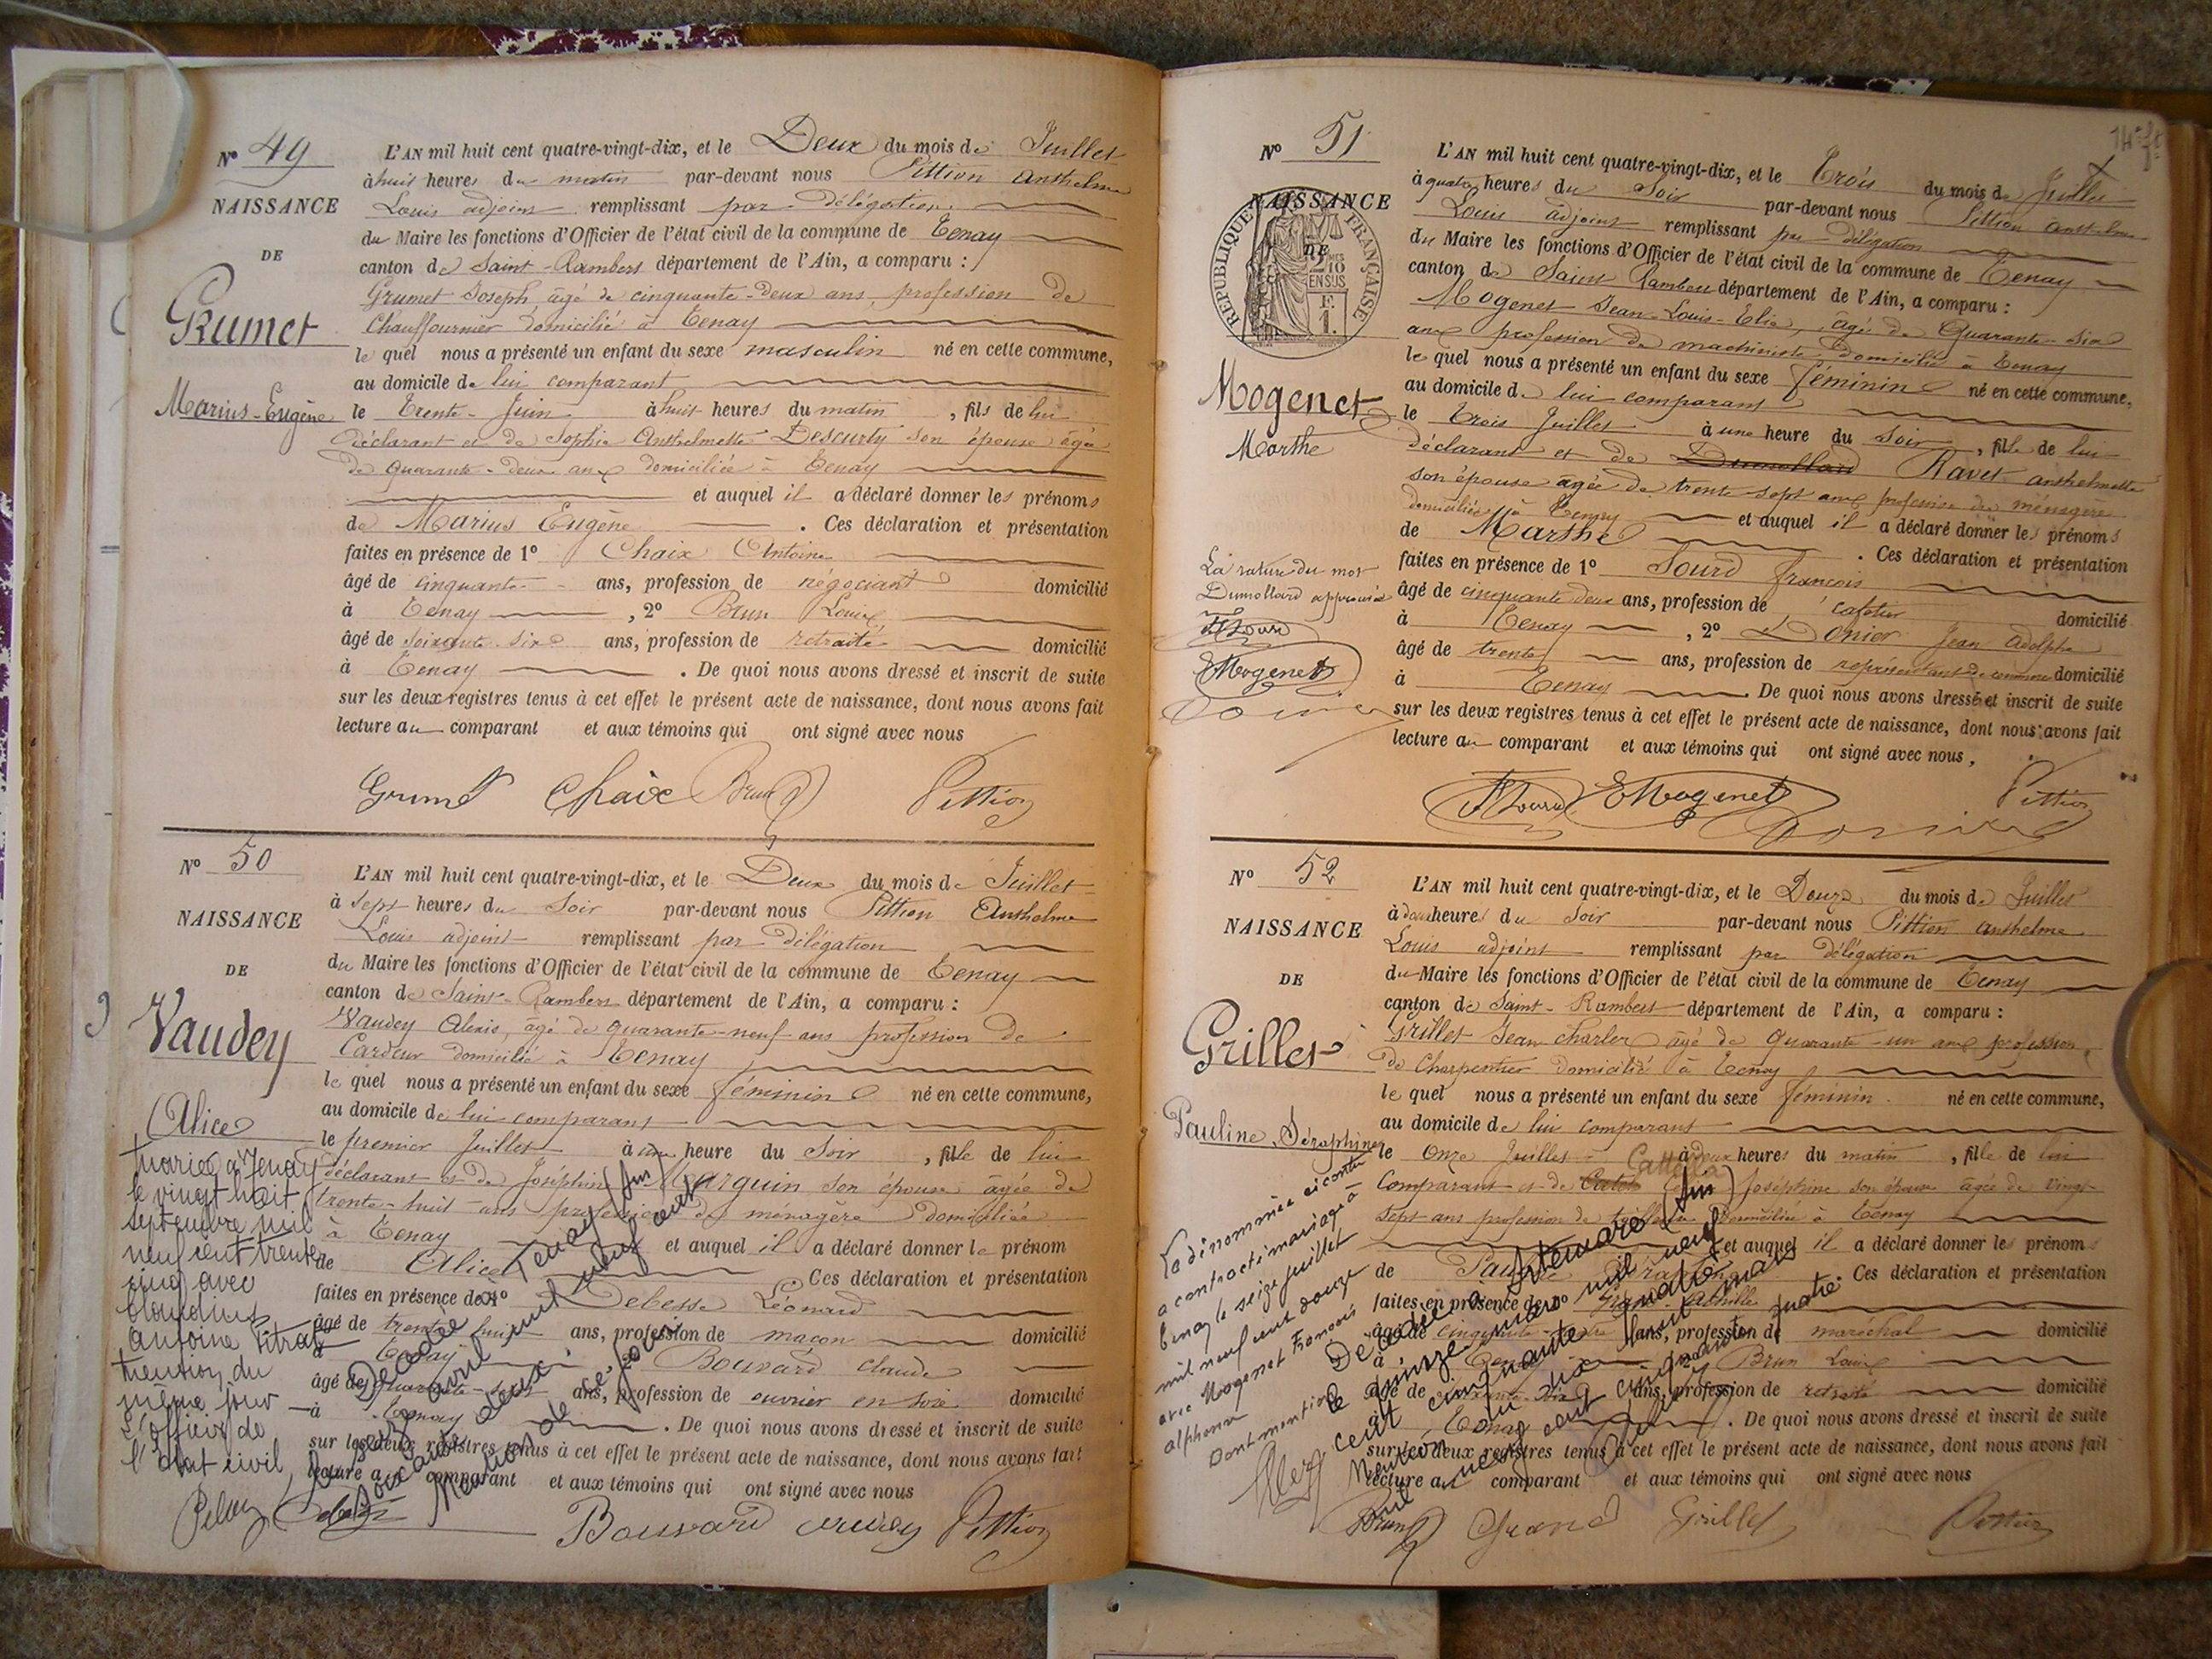 N° 49
NAISSANCE
DE
Grumet
Marius-Eugène
L'AN mil huit cent quatre-vingt-dix, et le Deux du mois de Juillet
à huit heures du matin par-devant nous Pittion Anthelme
Louis adjoint remplissant par délégation
du Maire les fonctions d'Officier de l'état civil de la commune de Tenay
canton de Saint-Rambert département de l'Ain, a comparu :
Grumet Joseph, âgé de cinquante-deux ans, profession de
Chauffournier domicilié à Tenay
le quel nous a présenté un enfant du sexe masculin né en cette commune,
au domicile de lui comparant
le Trente Juin à huit heures du matin, fils de lui
déclarant et de Sophie Anthelmette Descurty son épouse âgée
de quarante-deux ans domiciliée à Tenay
et auquel il a déclaré donner les prénoms
de Marius Eugène. Ces déclaration et présentation
faites en présence de 1° Chaix Antoine
âgé de cinquante ans, profession de négociant domicilié
à Tenay, 2° Brun Louis
âgé de soixante-six ans, profession de retraité domicilié
à Tenay. De quoi nous avons dressé et inscrit de suite
sur les deux registres tenus à cet effet le présent acte de naissance, dont nous avons fait
lecture au comparant et aux témoins qui ont signé avec nous
Grumet Chaix Brun Pittion
N° 50
NAISSANCE
DE
Vaudey
Alice
L'AN mil huit cent quatre-vingt-dix, et le Deux du mois de Juillet
à sept heures du soir par-devant nous Pittion Anthelme
Louis adjoint remplissant par délégation
du Maire les fonctions d'Officier de l'état civil de la commune de Tenay
canton de Saint-Rambert département de l'Ain, a comparu :
Vaudey Alexis, âgé de quarante-neuf ans profession de
Cardeur domicilié à Tenay
le quel nous a présenté un enfant du sexe féminin né en cette commune,
au domicile de lui comparant
le premier Juillet à une heure du soir, fille de lui
déclarant et de Joséphine Marguin son épouse âgée de
trente-huit ans profession de ménagère domiciliée
à Tenay et auquel il a déclaré donner le prénom
de Alice Ces déclaration et présentation
faites en présence de 1° Debesse Léonard
âgé de trente huit ans, profession de maçon domicilié
à Tenay Bouvard Claude
âgé de quarante-sept ans, profession de ouvrier en soie domicilié
à Tenay. De quoi nous avons dressé et inscrit de suite
sur les deux registres tenus à cet effet le présent acte de naissance, dont nous avons fait
lecture au comparant et aux témoins qui ont signé avec nous
Bouvard Vaudey Pittion
Mariée à Tenay
le vingt huit
septembre mil
neuf cent trente
cinq avec
Antoine
Mention du
même jour
L'officier de
l'état civil
Décédée à Tenay (Ain)
le seize avril mil neuf cent
soixante deux.
Mention de ce jour
N° 51
NAISSANCE
DE
RÉPUBLIQUE FRANÇAISE
Mogenet
Marthe
L'AN mil huit cent quatre-vingt-dix, et le Trois du mois de Juillet
à quatre heures du soir par-devant nous Pittion Anthelme
Louis adjoint remplissant par délégation
du Maire les fonctions d'Officier de l'état civil de la commune de Tenay
canton de Saint Rambert département de l'Ain, a comparu :
Mogenet Jean-Louis-Elie, âgé de quarante-six
ans profession de machiniste domicilié à Tenay
le quel nous a présenté un enfant du sexe féminin né en cette commune,
au domicile de lui comparant
le Trois Juillet à une heure du soir, fille de lui
déclarant et de Dumollard Ravet anthelmette
son épouse âgée de trente-sept ans profession de ménagère
domiciliée à Tenay et auquel il a déclaré donner les prénoms
de Marthe. Ces déclaration et présentation
faites en présence de 1° Sourd François
âgé de cinquante deux ans, profession de cafetier domicilié
à Tenay, 2° Donier Jean Adolphe
âgé de trente ans, profession de représentant de commerce domicilié
à Tenay. De quoi nous avons dressé et inscrit de suite
sur les deux registres tenus à cet effet le présent acte de naissance, dont nous avons fait
lecture au comparant et aux témoins qui ont signé avec nous,
La rature du mot
Dumollard approuvée
F Sourd
E Mogenet
Donier
F Sourd E Mogenet Pittion
Donier
N° 52
NAISSANCE
DE
Grillet
Pauline, Séraphine
L'AN mil huit cent quatre-vingt-dix, et le Douze du mois de Juillet
à deux heures du soir par-devant nous Pittion anthelme
Louis adjoint remplissant par délégation
du Maire les fonctions d'Officier de l'état civil de la commune de Tenay
canton de Saint-Rambert département de l'Ain, a comparu :
Grillet Jean Charles âgé de quarante-un ans profession
de Charpentier domicilié à Tenay
le quel nous a présenté un enfant du sexe féminin né en cette commune,
au domicile de lui comparant
le onze Juillet à deux heures du matin, fille de lui
comparant et de Joséphine son épouse âgée de vingt
sept ans profession de domiciliée à Tenay
et auquel il a déclaré donner les prénoms
de Pauline Séraphine. Ces déclaration et présentation
faites en présence de 1° Grand Achille
âgé de cinquante-quatre ans, profession de maréchal domicilié
à Tenay Brun Louis
âgé de soixante-six ans, profession de retraité domicilié
à Tenay. De quoi nous avons dressé et inscrit de suite
sur les deux registres tenus à cet effet le présent acte de naissance, dont nous avons fait
lecture au comparant et aux témoins qui ont signé avec nous
Brun Grand Grillet Pittion
La dénommée ci contre
a contracté mariage à
Tenay le seize juillet
mil neuf cent douze
avec Mogenet François
alphonse
Dont mention
Décédée à Artemare (Ain)
le quinze mars mil neuf
cent cinquante quatre
Mention du huit mars
mil neuf cent cinquante quatre